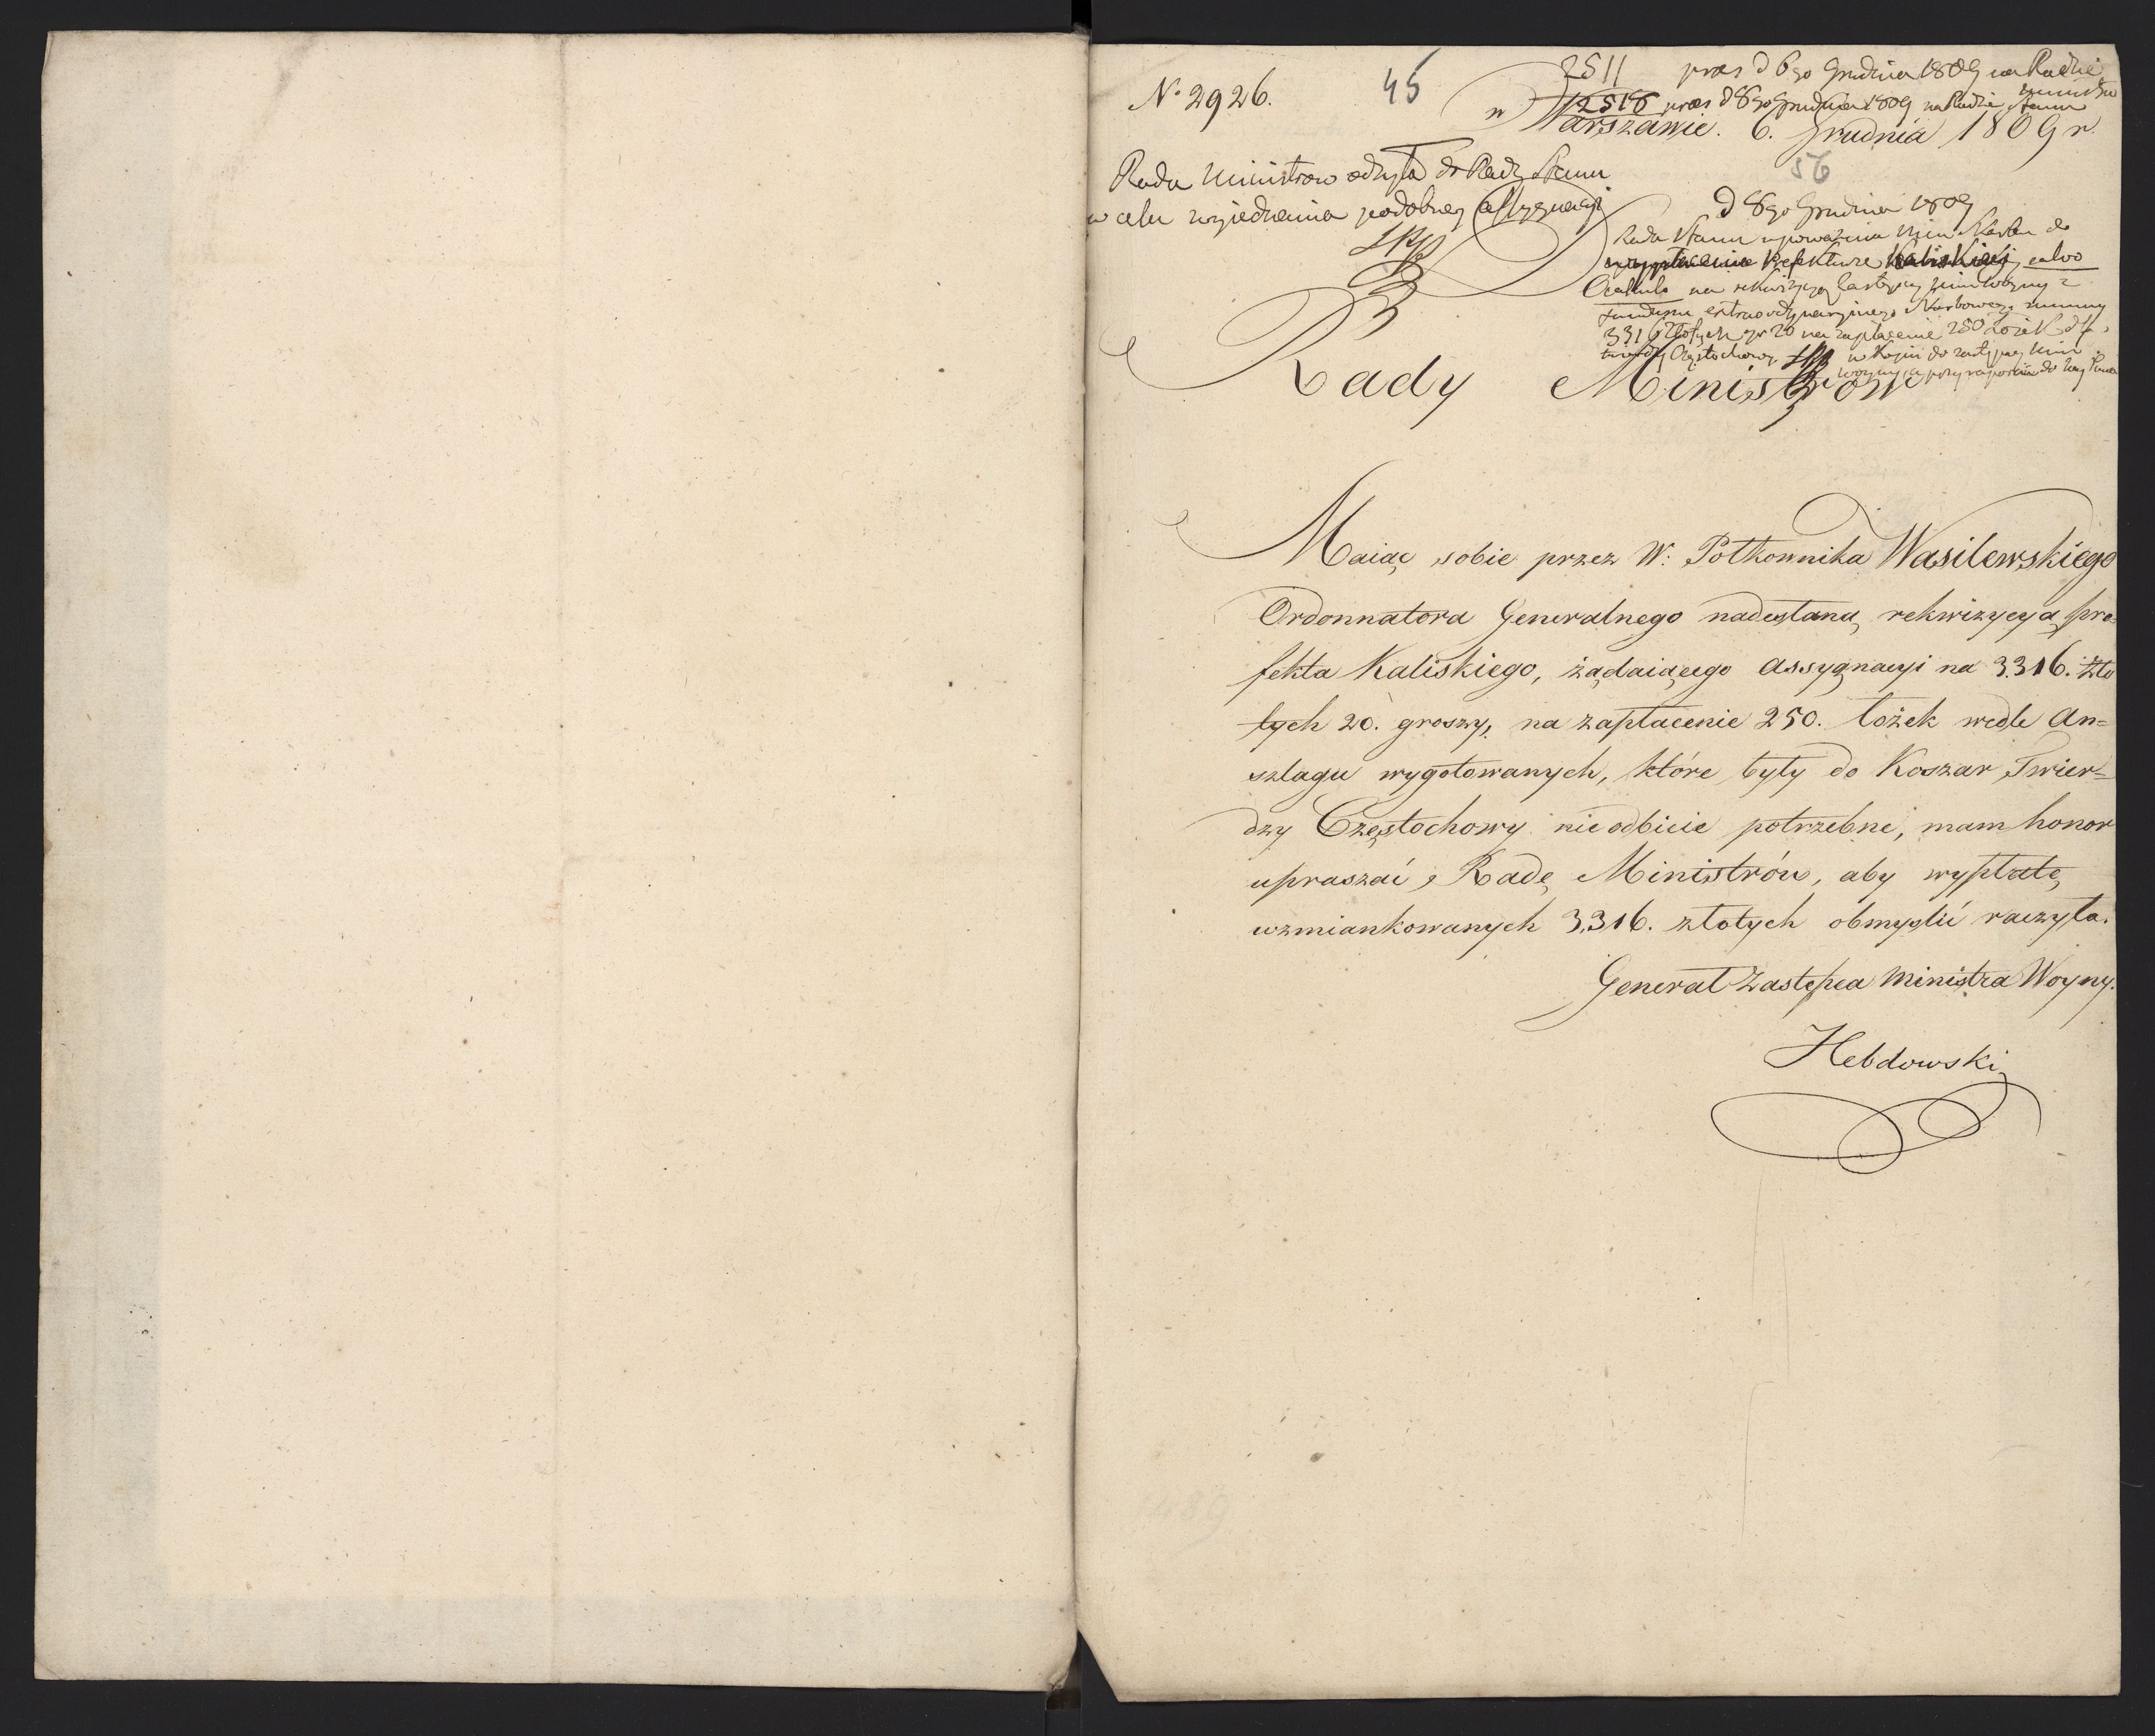 No 2926.
45
2511 præs d 6go Grudnia 1809 na Radzie
Ministrów
2518 præs d 8go Grudnia 1809 na Radzie Stanu
w Warszawie. 6. Grudnia 1809 r.
56
Rada Ministrow odsyła do Rady Stanu
w celu wyiednania podobney assygnacyi
d 8go Grudnia 1809
Rada Stanu upoważnia Min Skarbu do
wypłacenia Prefekturze Kaliskiey salvo
Calculo na rekwizycyą Zastępcy Min Woyny z
funduszu extraordynaryinego Skarbowego summy
3316 Złotych gr 20 na zapłacenie 250 łożek dla
twierdzy Częstochowy. w Kopii do zastępcy Min
Woyny
Rady Ministrów
Maiąc sobie przez W: Półkownika Wasilewskiego
Ordonnatora Generalnego nadesłaną rekwizycyą pre-
fekta Kaliskiego, żądaiącego assygnacyi na 3.316. zło
tych 20. groszy, na zapłacenie 250. łożek wedle an=
szlagu wygotowanych, które były do Koszar Twier=
dzy Częstochowy nieodbicie potrzebne, mam honor
upraszać Radę Ministrów, aby wypłatę
wzmiankowanych 3.316. złotych obmyślić raczyła.
Generał Zastępca Ministra Woyny.
Hebdowski